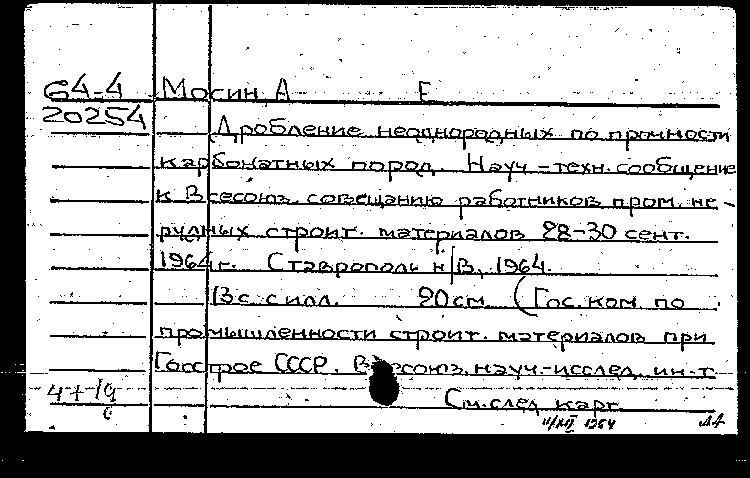 64-4 Мосин, А Е
20254 Дробление неоднородных по прочности
карбонатных пород. Науч-техн. сообщение
к Всесоюз. совещанию работников пром. не-
рудных строит. материалов 28-30 сент.
1964 г. Ставрополь н/В, 1964.
13 с. с илл. 20 см. (Гос. ком. по
промышленности строит. материалов при
Госстрое СССР. Всесоюз. науч.-исслед. ин-т
4+19
См. след. карт.
1964